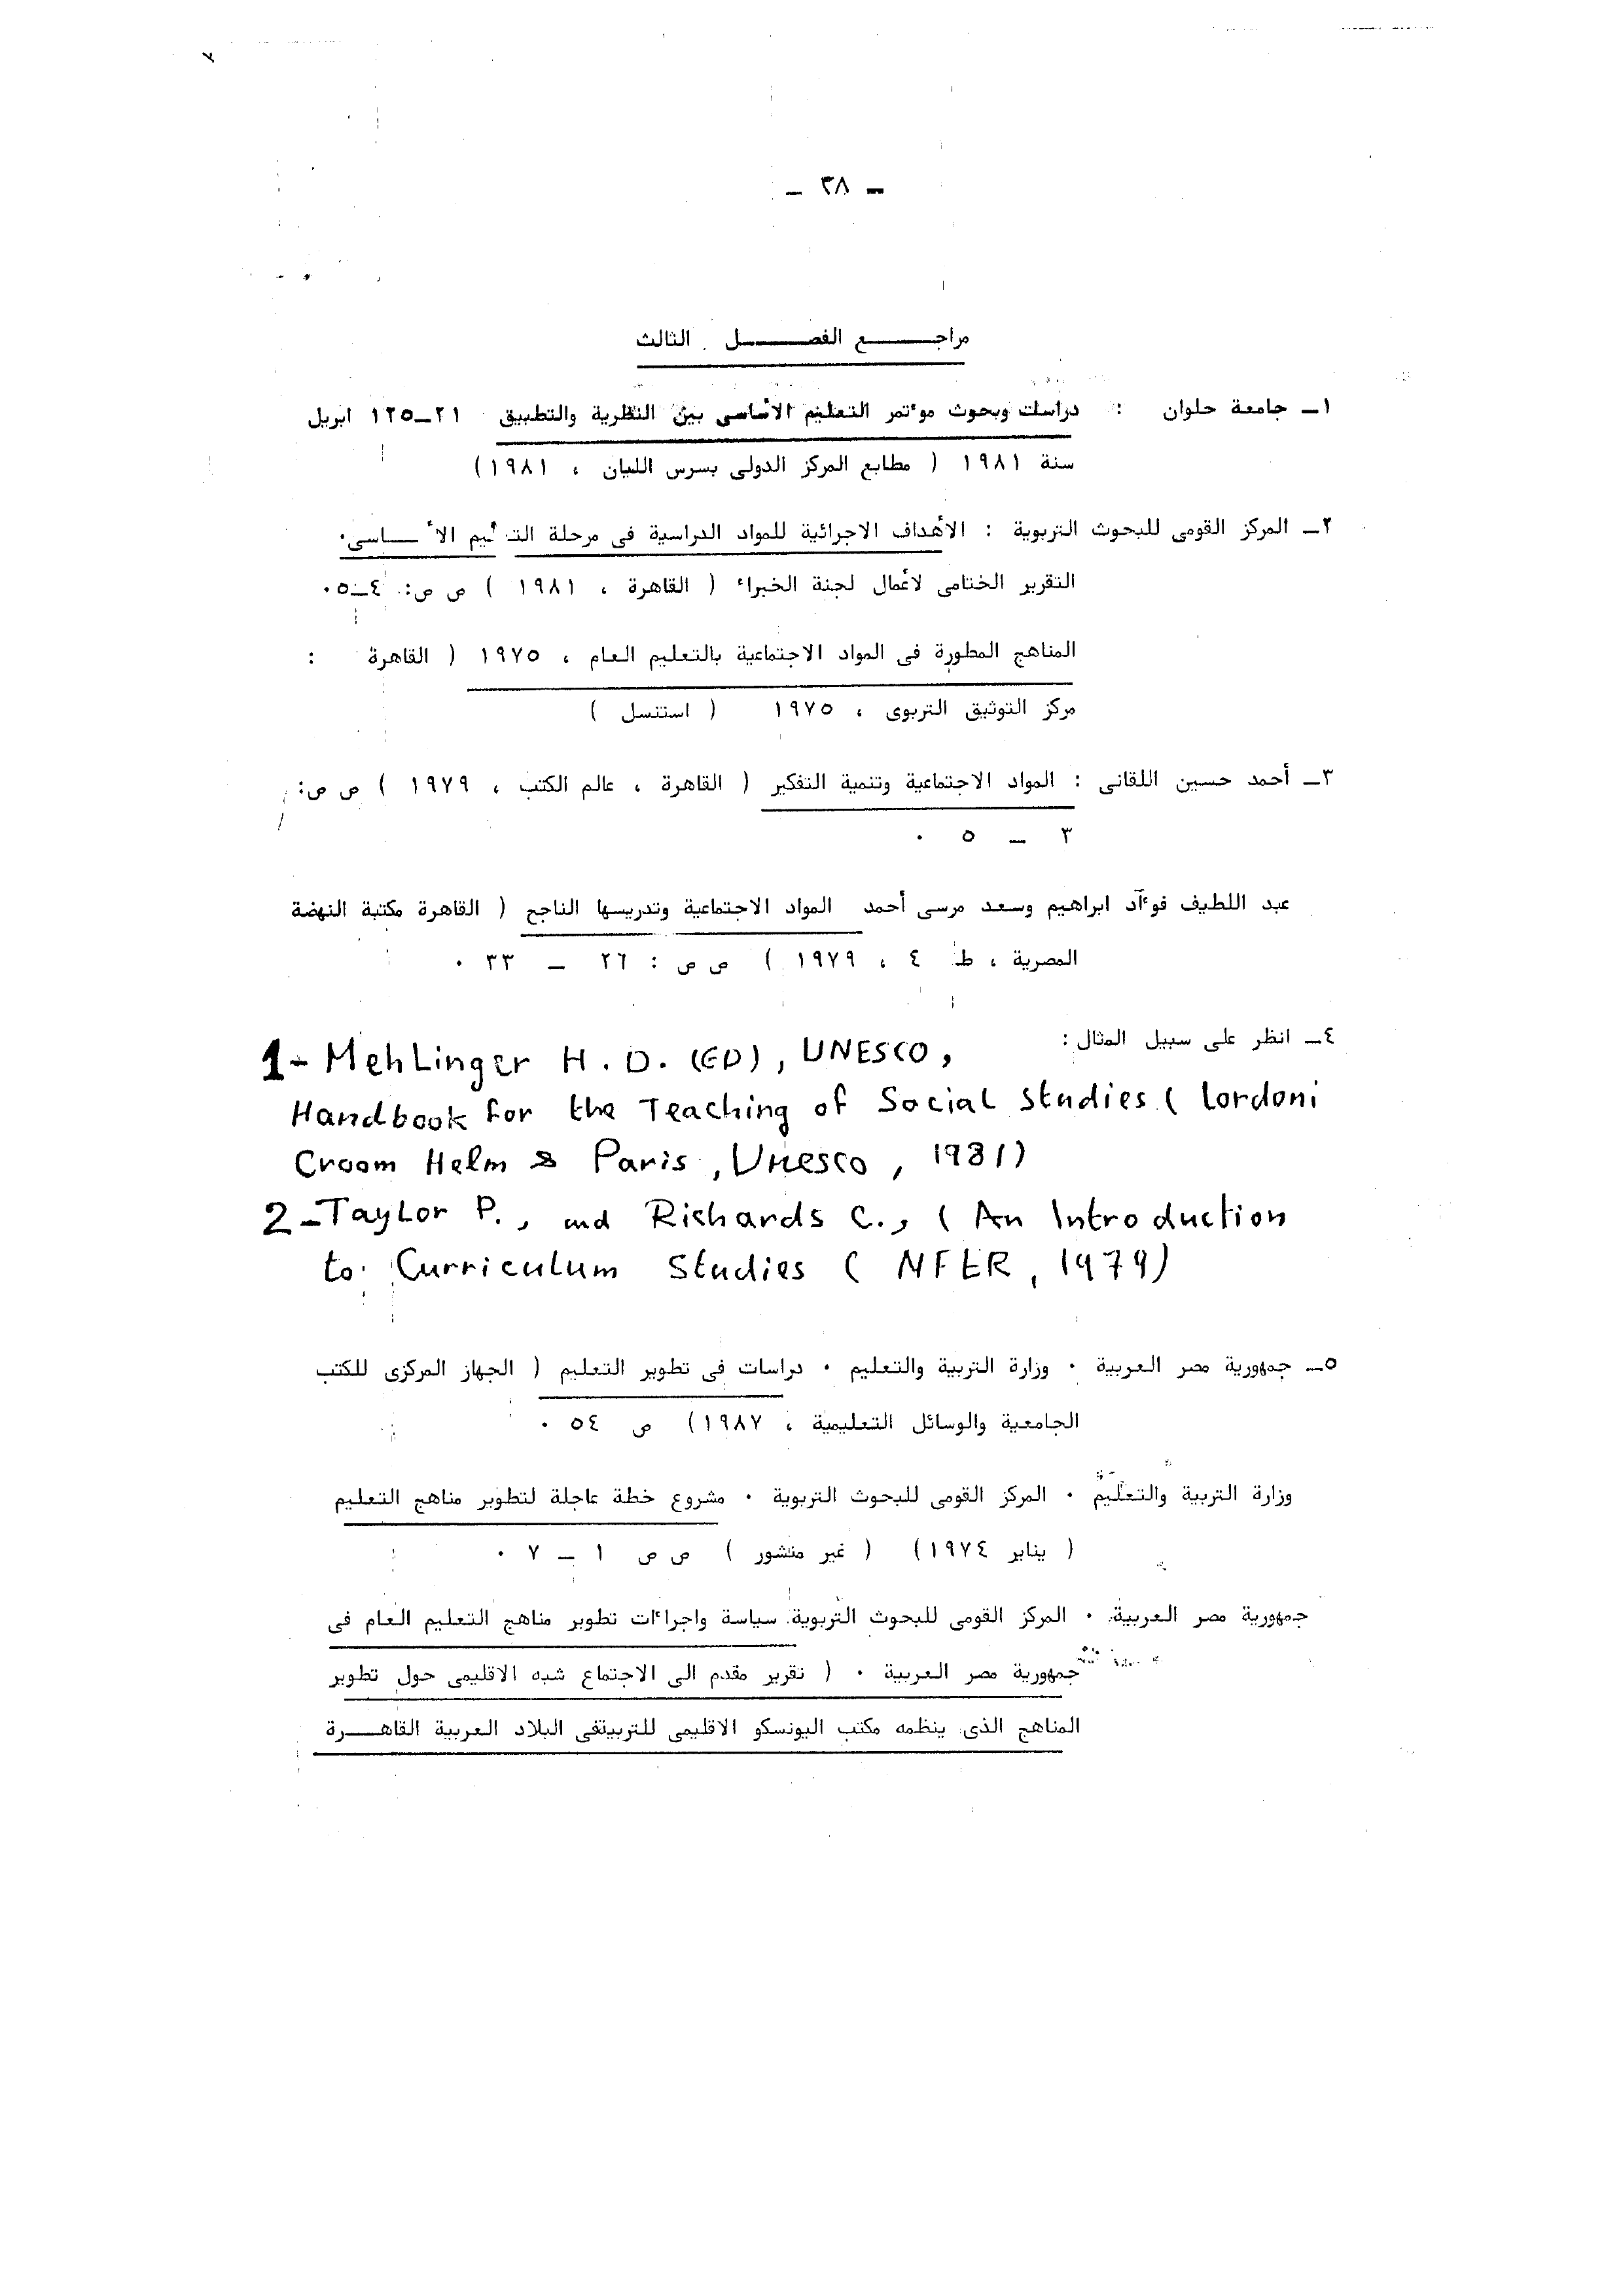 - ٣٨ -
مراجع الفصل الثالث
١- جامعة حلوان : دراسات وبحوث موءتمر التعليم الأساسى بين النظرية والتطبيق ٢١-١٢٥ ابريل
سنة ١٩٨١ ( مطابع المركز الدولى بسرس الليان ، ١٩٨١)
٢- المركز القومى للبحوث التربوية : الأهداف الاجرائية للمواد الدراسية فى مرحلة التعليم الأساسى٠
التقرير الختامى لأعمال لجنة الخبراء ( القاهرة ، ١٩٨١ ) ص ص: ٤-٥٠
المناهج المطورة فى المواد الاجتماعية بالتعليم العام ، ١٩٧٥ ( القاهرة :
مركز التوثيق التربوى ، ١٩٧٥ ( استنسل )
٣- أحمد حسين اللقانى : المواد الاجتماعية وتنمية التفكير ( القاهرة ، عالم الكتب ، ١٩٧٩ ) ص ص:
٣ - ٥ ٠
عبد اللطيف فوءآد ابراهيم وسعد مرسى أحمد المواد الاجتماعية وتدريسها الناجح ( القاهرة مكتبة النهضة
المصرية ، ط ٤ ، ١٩٧٩ ) ص ص : ٢٦ - ٣٣ ٠
٤- انظر على سبيل المثال :
1- Mehlinger H. D. (ED), UNESCO,
Handbook for the Teaching of Social Studies ( Lordoni
Croom Helm & Paris, Unesco, 1981)
2- Taylor P., and Richards C., ( An Introduction
to Curriculum Studies ( NFER, 1979)
٥- جمهورية مصر العربية ٠ وزارة التربية والتعليم ٠ دراسات فى تطوير التعليم ( الجهاز المركزى للكتب
الجامعية والوسائل التعليمية ، ١٩٨٧) ص ٥٤ ٠
وزارة التربية والتعليم ٠ المركز القومى للبحوث التربوية ٠ مشروع خطة عاجلة لتطوير مناهج التعليم
( يناير ١٩٧٤) ( غير منشور ) ص ص ١ - ٧ ٠
جمهورية مصر العربية ٠ المركز القومى للبحوث التربوية سياسة واجراءات تطوير مناهج التعليم العام فى
جمهورية مصر العربية ٠ ( تقرير مقدم الى الاجتماع شبه الاقليمى حول تطوير
المناهج الذى ينظمه مكتب اليونسكو الاقليمى للتربيتفى البلاد العربية القاهرة